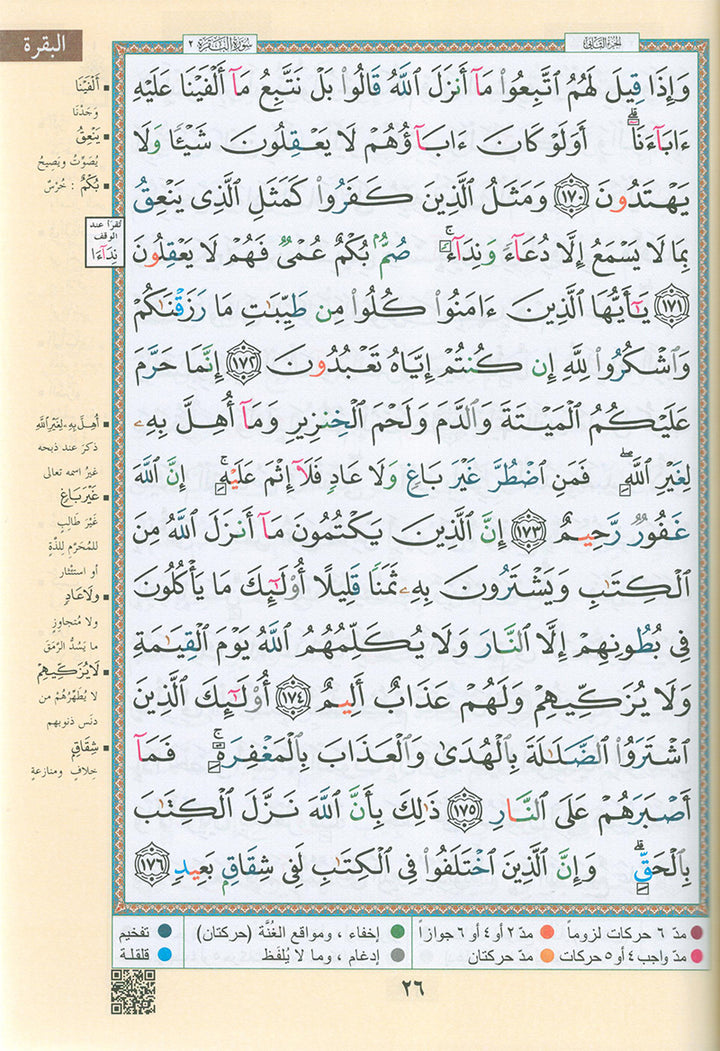 البقرة
سورة البقرة ٢
الجزء الثاني
وَإِذَا قِيلَ لَهُمُ ٱتَّبِعُوا۟ مَآ أَنزَلَ ٱللَّهُ قَالُوا۟ بَلْ نَتَّبِعُ مَآ أَلْفَيْنَا عَلَيْهِ
ءَابَآءَنَآ ۗ أَوَلَوْ كَانَ ءَابَآؤُهُمْ لَا يَعْقِلُونَ شَيْـًٔا وَلَا
يَهْتَدُونَ ١٧٠ وَمَثَلُ ٱلَّذِينَ كَفَرُوا۟ كَمَثَلِ ٱلَّذِى يَنْعِقُ
بِمَا لَا يَسْمَعُ إِلَّا دُعَآءً وَنِدَآءً ۚ صُمٌّۢ بُكْمٌ عُمْىٌ فَهُمْ لَا يَعْقِلُونَ
١٧١ يَـٰٓأَيُّهَا ٱلَّذِينَ ءَامَنُوا۟ كُلُوا۟ مِن طَيِّبَـٰتِ مَا رَزَقْنَـٰكُمْ
وَٱشْكُرُوا۟ لِلَّهِ إِن كُنتُمْ إِيَّاهُ تَعْبُدُونَ ١٧٢ إِنَّمَا حَرَّمَ
عَلَيْكُمُ ٱلْمَيْتَةَ وَٱلدَّمَ وَلَحْمَ ٱلْخِنزِيرِ وَمَآ أُهِلَّ بِهِۦ
لِغَيْرِ ٱللَّهِ ۖ فَمَنِ ٱضْطُرَّ غَيْرَ بَاغٍ وَلَا عَادٍ فَلَآ إِثْمَ عَلَيْهِ ۚ إِنَّ ٱللَّهَ
غَفُورٌ رَّحِيمٌ ١٧٣ إِنَّ ٱلَّذِينَ يَكْتُمُونَ مَآ أَنزَلَ ٱللَّهُ مِنَ
ٱلْكِتَـٰبِ وَيَشْتَرُونَ بِهِۦ ثَمَنًا قَلِيلًا أُو۟لَـٰٓئِكَ مَا يَأْكُلُونَ
فِى بُطُونِهِمْ إِلَّا ٱلنَّارَ وَلَا يُكَلِّمُهُمُ ٱللَّهُ يَوْمَ ٱلْقِيَـٰمَةِ
وَلَا يُزَكِّيهِمْ وَلَهُمْ عَذَابٌ أَلِيمٌ ١٧٤ أُو۟لَـٰٓئِكَ ٱلَّذِينَ
ٱشْتَرَوُا۟ ٱلضَّلَـٰلَةَ بِٱلْهُدَىٰ وَٱلْعَذَابَ بِٱلْمَغْفِرَةِ ۚ فَمَآ
أَصْبَرَهُمْ عَلَى ٱلنَّارِ ١٧٥ ذَٰلِكَ بِأَنَّ ٱللَّهَ نَزَّلَ ٱلْكِتَـٰبَ
بِٱلْحَقِّ ۗ وَإِنَّ ٱلَّذِينَ ٱخْتَلَفُوا۟ فِى ٱلْكِتَـٰبِ لَفِى شِقَاقٍۭ بَعِيدٍ ١٧٦
أَلْفَيْنَا
وَجَدْنَا
يَنْعِقُ
يُصَوِّتُ ويَصِيحُ
بُكْمٌ : خُرْسٌ
تُقرأ عند
الوقف
نِدَآءَا
أُهِلَّ بِهِۦ لِغَيْرِ ٱللَّهِ
ذكرَ عند ذبحه
غيرُ اسمه تعالى
غَيْرَ بَاغٍ
غَيْرَ طَالِبٍ
للمُحَرَّم لِلذَّةٍ
أو استئثار
وَلَا عَادٍ
ولا مُتجاوِزٍ
ما يَسُدُّ الرَّمَقَ
لَا يُزَكِّيهِمْ
لا يُطَهِّرُهُمْ من
دنَس ذنوبهم
شِقَاقٍ
خِلافٍ ومنازعةٍ
مدّ ٦ حركات لزوماً
مدّ ٢ أو ٤ أو ٦ جوازاً
إخفاء ، ومواقع الغُنَّة (حركتان)
تفخيم
مدّ واجب ٤ أو ٥ حركات
مدّ حركتان
إدغام ، وما لا يُلفَظ
قلقلة
٢٦